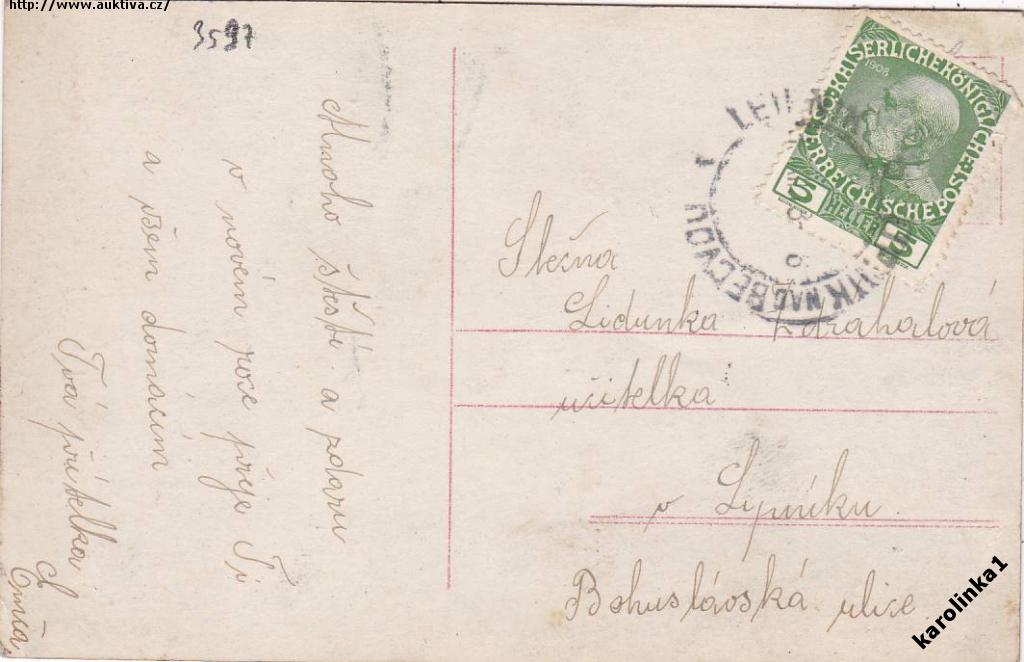 http://www.auktiva.cz/
3597
Mnoho štěstí a zdaru
v novém roce přeje Ti
a všem domácím
Tvá přítelka
Slečna
Lidunka Zdrahalová
učitelka
v Lipníku
Bohuslávská ulice
KAISERLICHE KÖNIGLICHE
ÖSTERREICHISCHE POST
1908
5 HELLER 5
NAD BEČVOU
karolinka1